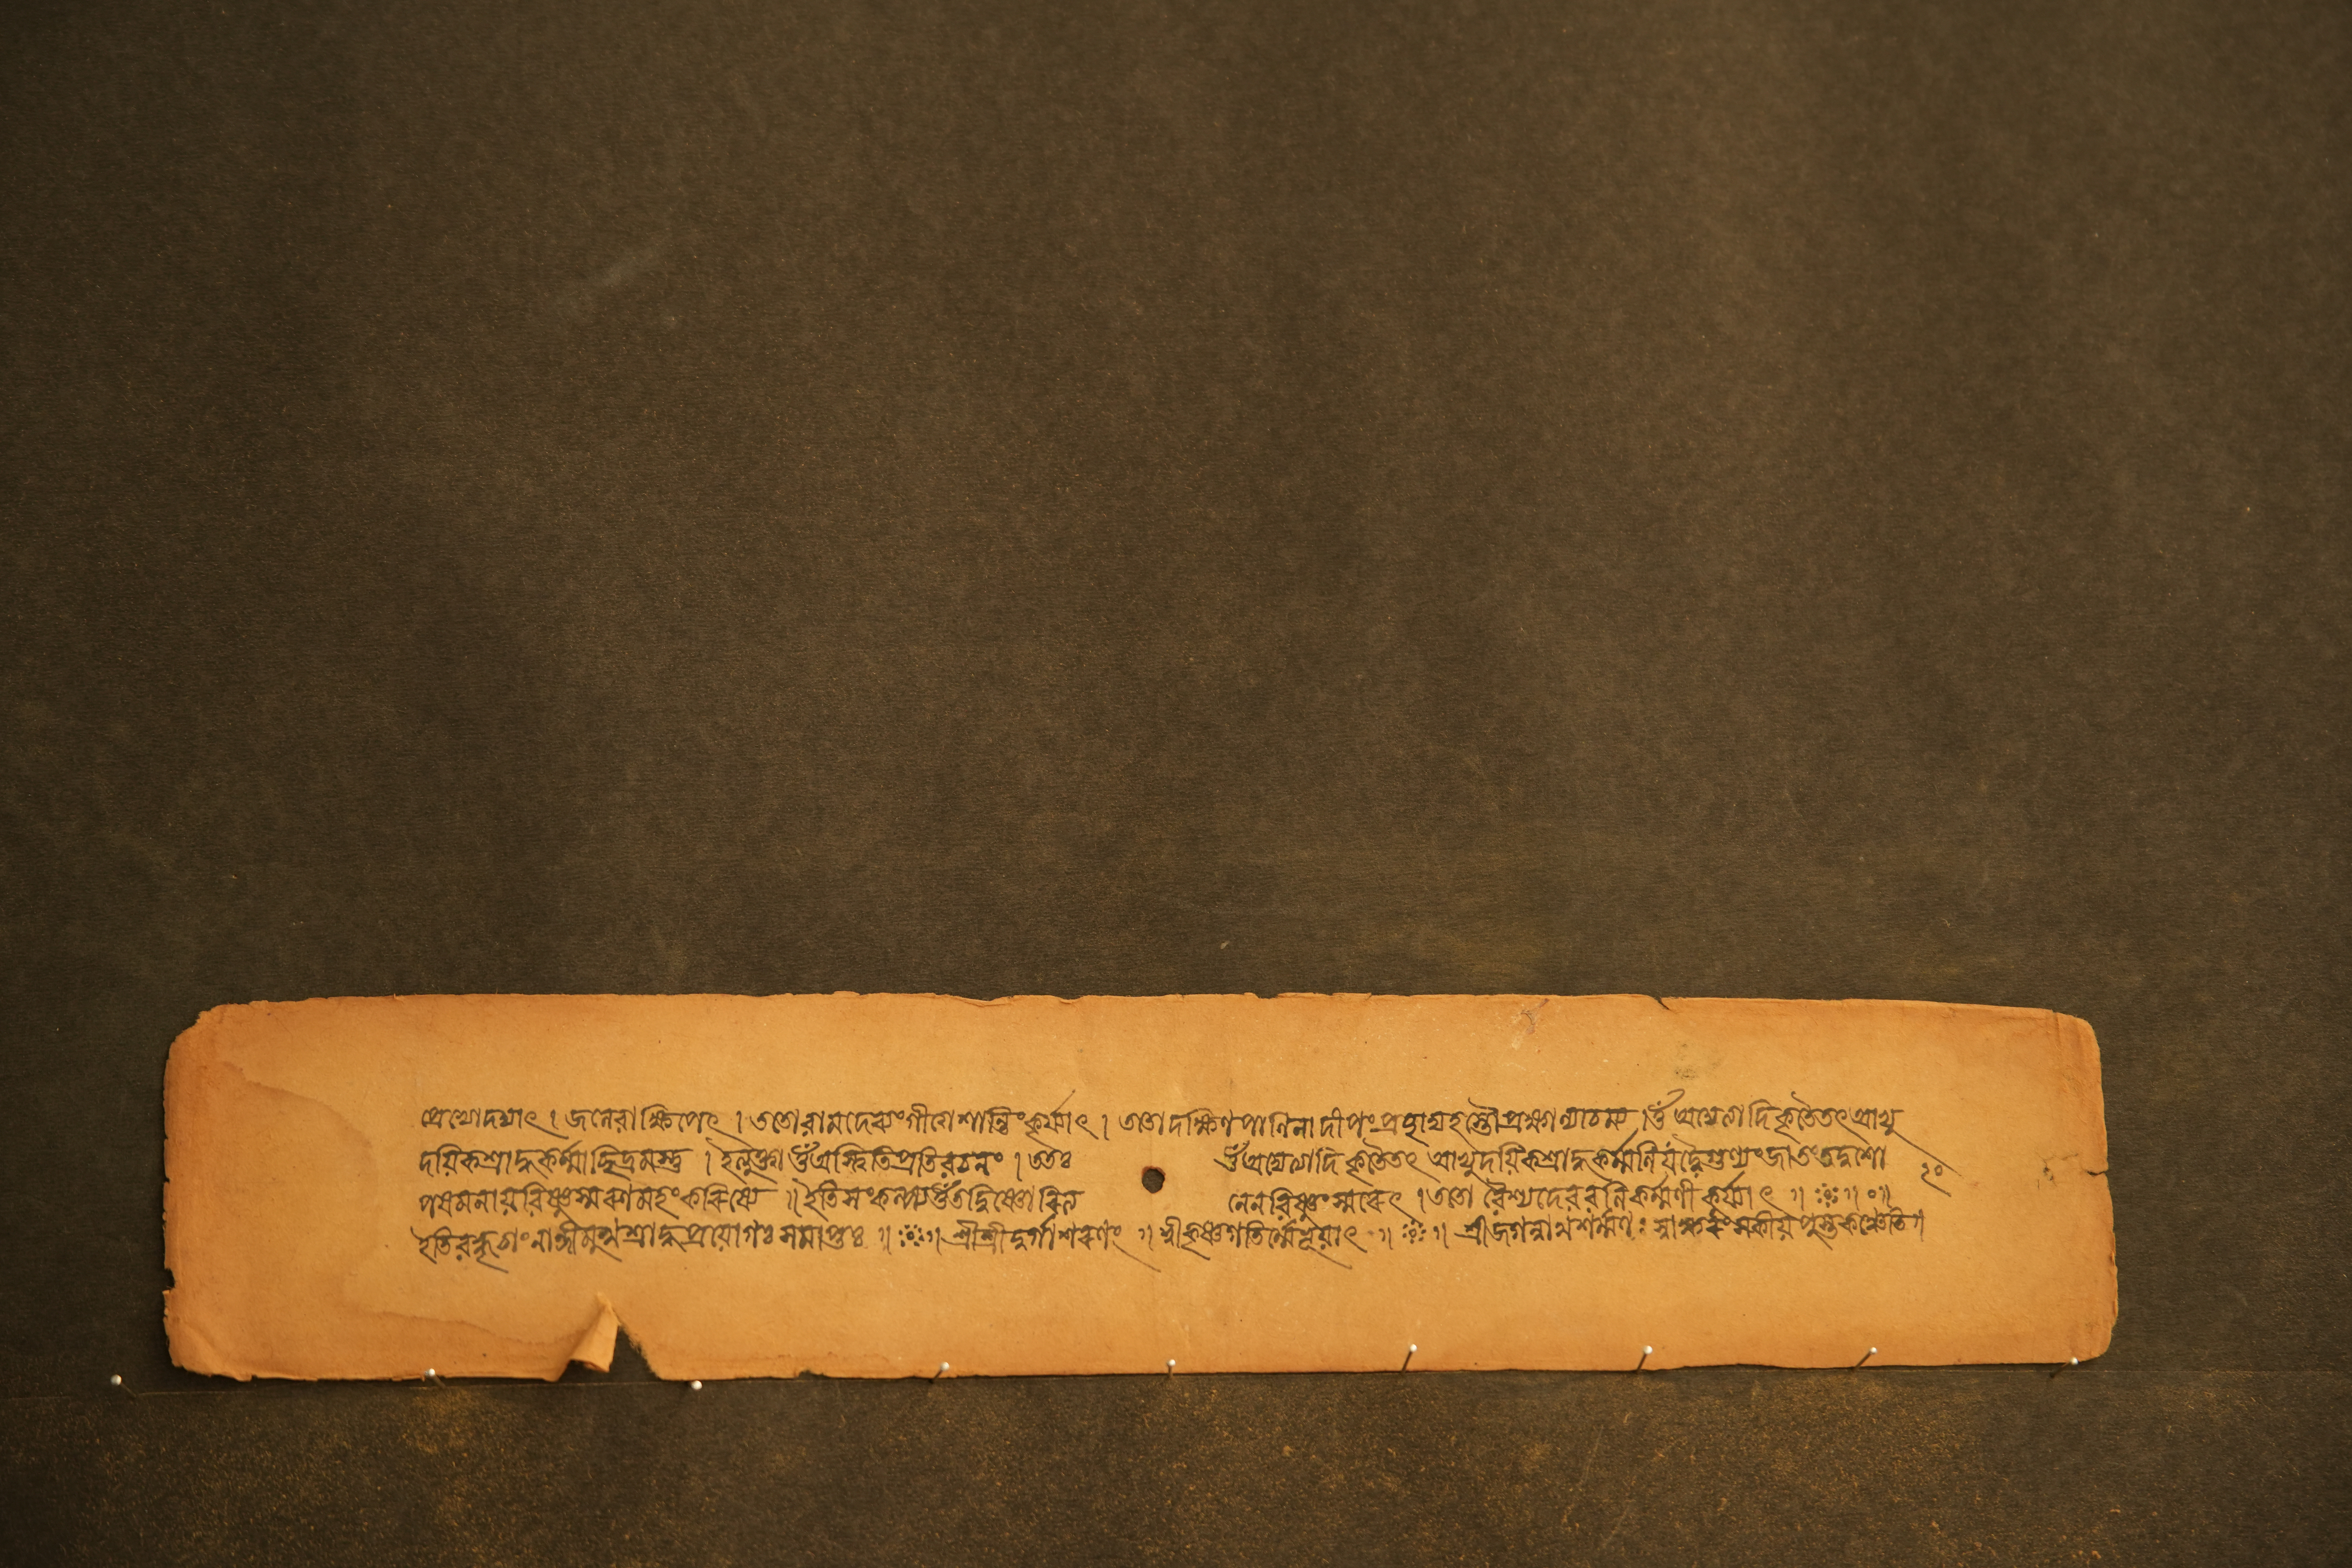 জলেবাক্ষিপেৎ । ততোবামদেব্যংগীত্বেশান্তিংকুর্য্যাৎ । ততোদক্ষিণপাণিনাদীপং হস্তৌপ্রক্ষাল্যাচম্য ।ওঁঅদ্যেত্যাদিকৃতৈতৎআভ্যু
দয়িকশ্রাদ্ধকর্ম্মাচ্ছিদ্রমস্তু । ওঁঅস্ত্বিতিপ্রতিবচনং ।ততঃ ওঁঅদ্যেত্যাদিকৃতৈতৎ আভ্যুদয়িকশ্রাদ্ধকর্ম্মণিযদ্বৈগুণ্যংজাতংতদ্দোষো ২০
পশমনায়বিষ্ণুস্মরণমহংকরিষ্যে ॥ইতিসংকল্প্যওঁতদ্বিষ্ণোরিত্য নেনবিষ্ণুংস্মরেৎ ।ততো বৈশ্যদেববলিকর্ম্মণীকুর্য্যাৎ ॥ ॥ ০॥
ইতি নান্দীমুখশ্রাদ্ধপ্রয়োগঃসমাপ্তঃ ॥ ॥ শ্রীশ্রীদুর্গাশরণং ॥ শ্রীকৃষ্ণগতির্ম্মেভূয়াৎ ॥ ॥ শ্রীজগন্নাথশর্ম্মণঃ স্বাক্ষরংস্বকীয়পুস্তকঞ্চেতি॥